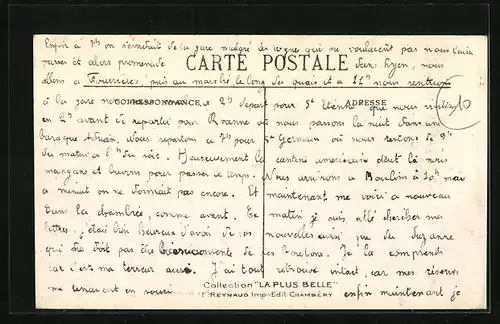 Enfin à 7h on s'enfuit de la gare malgré les cognes qui ne voulaient pas nous laisser
passer et alors promenade dans Lyon, nous
CARTE POSTALE
allons à Fourvières, puis au marché, le long des quais et à 11h nous rentrons
à la gare 2h départ pour St Etienne que nous visitons
CORRESPONDANCE ADRESSE
en 2h avant de repartir pour Roanne où nous passons la nuit dans une
baraque Adrian. Nous repartons à 7h pour St Germain où nous restons de 9h
du matin à 8h du soir. Heureusement la cantine américaine était là, nous
mangeons et buvons pour passer le temps. Nous arrivons à Moulins à 10h mais
à minuit on ne dormait pas encore. Et maintenant me voici à nouveau
dans la chambrée, comme avant. Ce matin je suis allé chercher mes
lettres, j'étais bien heureux d'avoir de vos nouvelles ainsi que de Suzanne
qui ne doit pas être bien contente de ses boutons. Je la comprends
car c'est ma terreur aussi. J'ai tout retrouvé intact, car mes
me tenaient en souci enfin maintenant je
Collection "LA PLUS BELLE"
REYNAUD Imp-Edit CHAMBÉRY